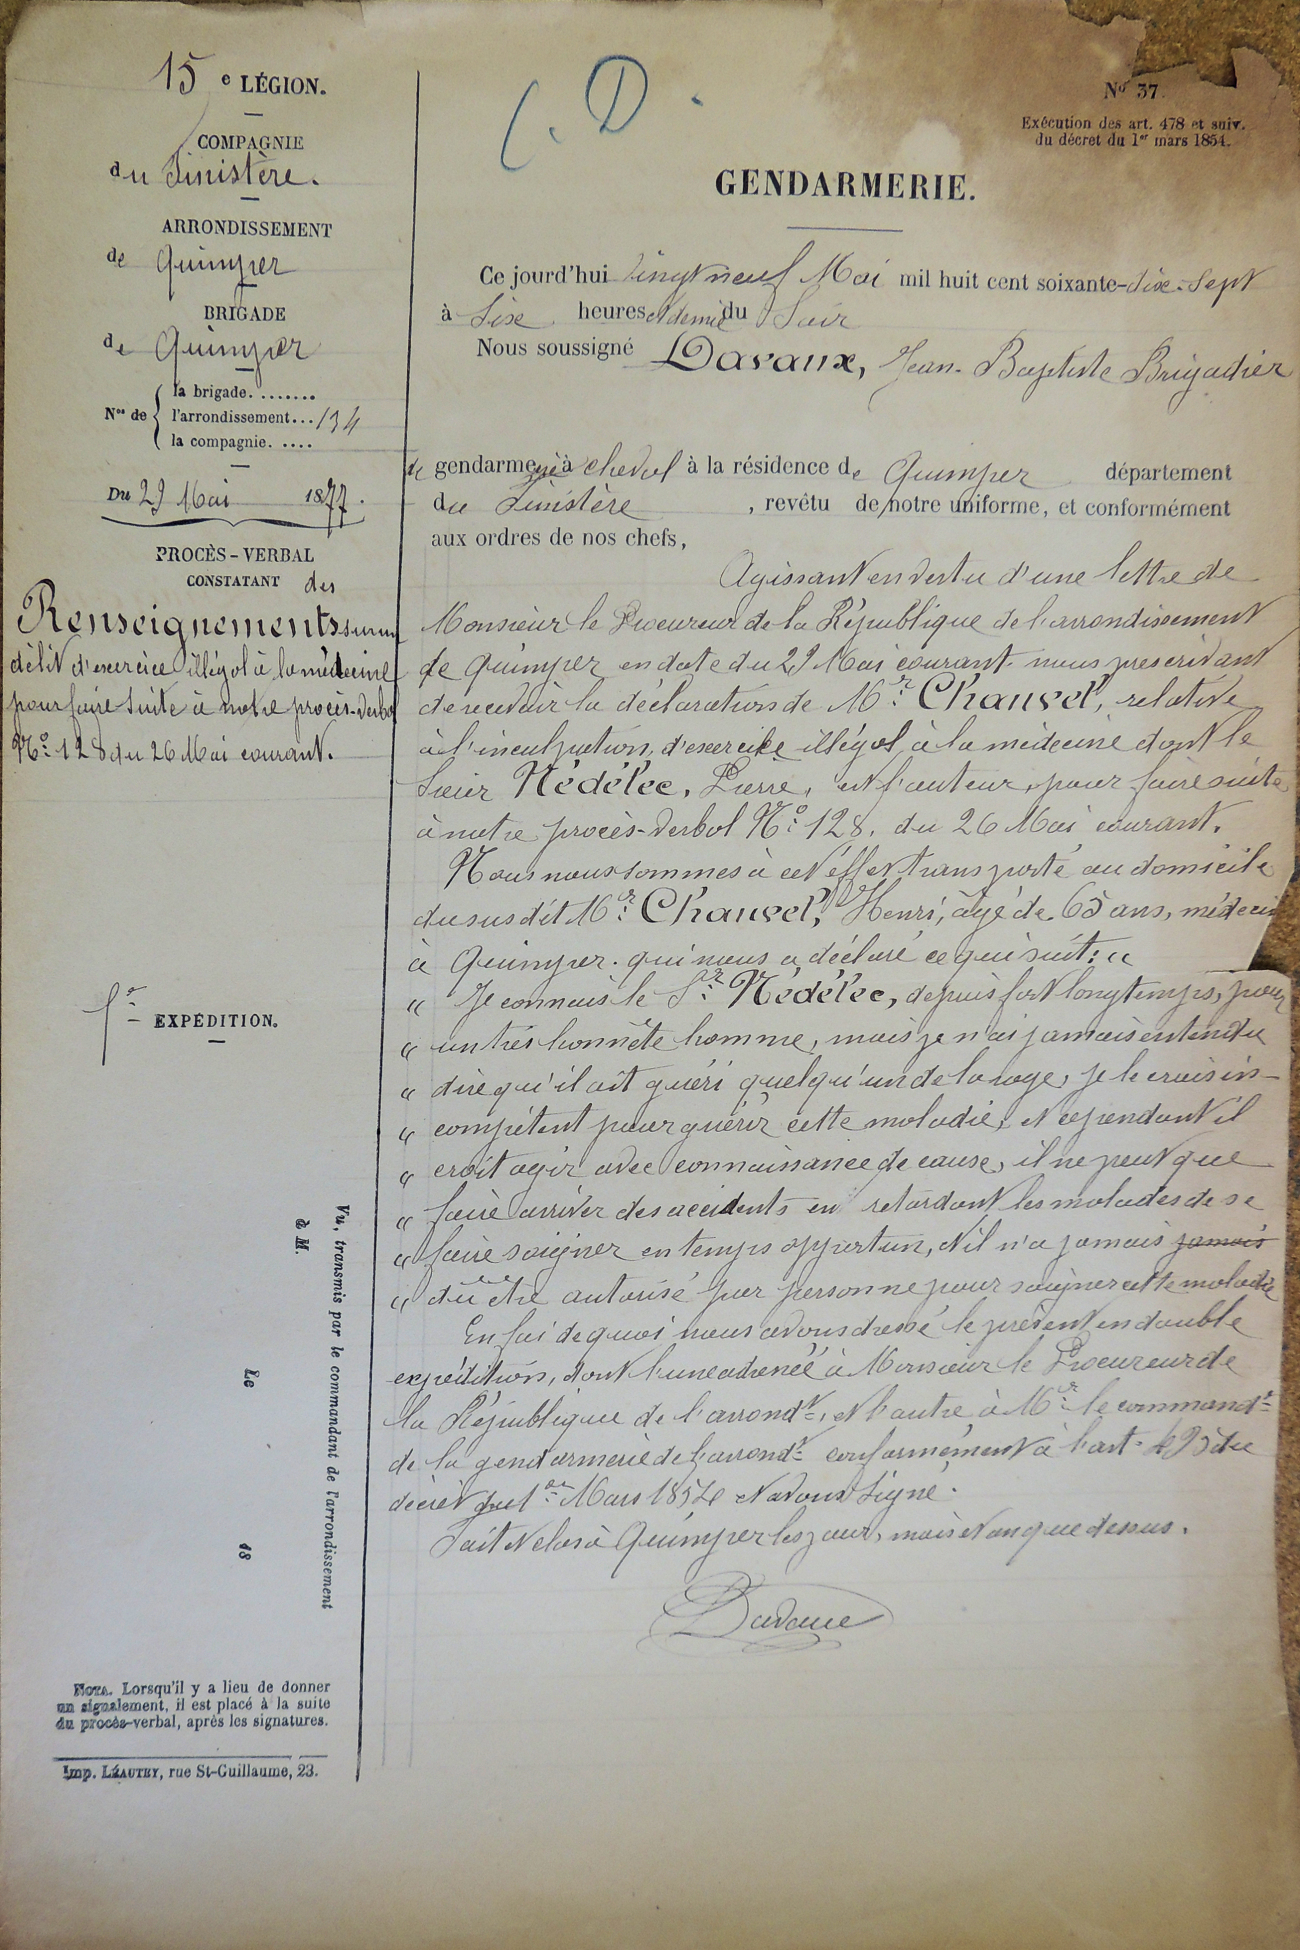 15 e LÉGION.
COMPAGNIE
du Finistère.
ARRONDISSEMENT
de Quimper
BRIGADE
de Quimper
Nos de { la brigade. .......
l'arrondissement... 134
la compagnie. ....
Du 29 Mai 1877.
PROCÈS-VERBAL
CONSTATANT des
Renseignements sur un
délit d'exercice illégal à la médecine
pour faire suite à notre procès-verbal
No. 128 du 26 Mai courant.
EXPÉDITION.
Vu, transmis par le commandant de l'arrondissement
à M.
Le 18
NOTA. Lorsqu'il y a lieu de donner
un signalement, il est placé à la suite
du procès-verbal, après les signatures.
Imp. LÉAUTEY, rue St-Guillaume, 23.
C. D.
No 37.
Exécution des art. 478 et suiv.
du décret du 1er mars 1854.
GENDARMERIE.
Ce jourd'hui vingt neuf Mai mil huit cent soixante-dix-sept
à Six heures et demie du Soir
Nous soussigné Davaux, Jean-Baptiste Brigadier
de gendarmerie à cheval à la résidence de Quimper département
du Finistère, revêtu de notre uniforme, et conformément
aux ordres de nos chefs,
Agissant en vertu d'une lettre de
Monsieur le Procureur de la République de l'arrondissement
de Quimper en date du 29 Mai courant nous prescrivant
de recevoir la déclaration de Mr. Chauvel, relative
à l'inculpation, d'exercice illégal, à la médecine dont le
Sieur Nédélec, Pierre, est l'auteur, pour faire suite
à notre procès-verbal No. 128. du 26 Mai courant.
Nous nous sommes à cet éffet transporté au domicile
du susdit Mr. Chauvel, Henri, âgé de 65 ans, médecin
à Quimper. qui nous a déclaré ce qui suit: «
« Je connais le Sr. Nédélec, depuis fort longtemps, pour
« un très honnête homme, mais je n'ai jamais entendu
« dire qu'il ait guéri quelqu'un de la rage, je le crois in-
« compétent pour guérir cette maladie, et cependant il
« croit agir avec connaissance de cause, il ne peut que
« faire arriver des accidents en retardant les malades de se
« faire soigner en temps opportun, et il n'a jamais jamais
« dû être autorisé par personne pour soigner cette maladie
En foi de quoi nous avons dressé le présent en double
expédition, dont l'une adressée à Monsieur le Procureur de
la République de l'arrondt., et l'autre à Mr. le commandt.
de la gendarmerie de l'arrondt. conformément à l'art. 495 du
décret du 1er Mars 1854 et avons signé.
Fait et clos à Quimper les jour, mois et an que dessus.
Davaux